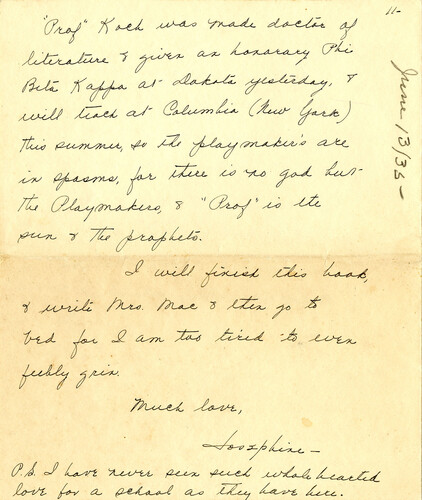 11-
June 13/35-
"Prof" Koch was made doctor of
literature & given an honorary Phi
Beta Kappa at Dakota yesterday, &
will teach at Columbia (New York)
this summer, so the playmaker's are
in spasms, for there is no god but
the Playmakers, & "Prof" is the
sun & the prophets.
I will finish this book,
& write Mrs. Mac & then go to
bed for I am too tired to even
feebly grin.
Much love,
Josephine-
P.S. I have never seen such whole hearted
love for a school as they have here.